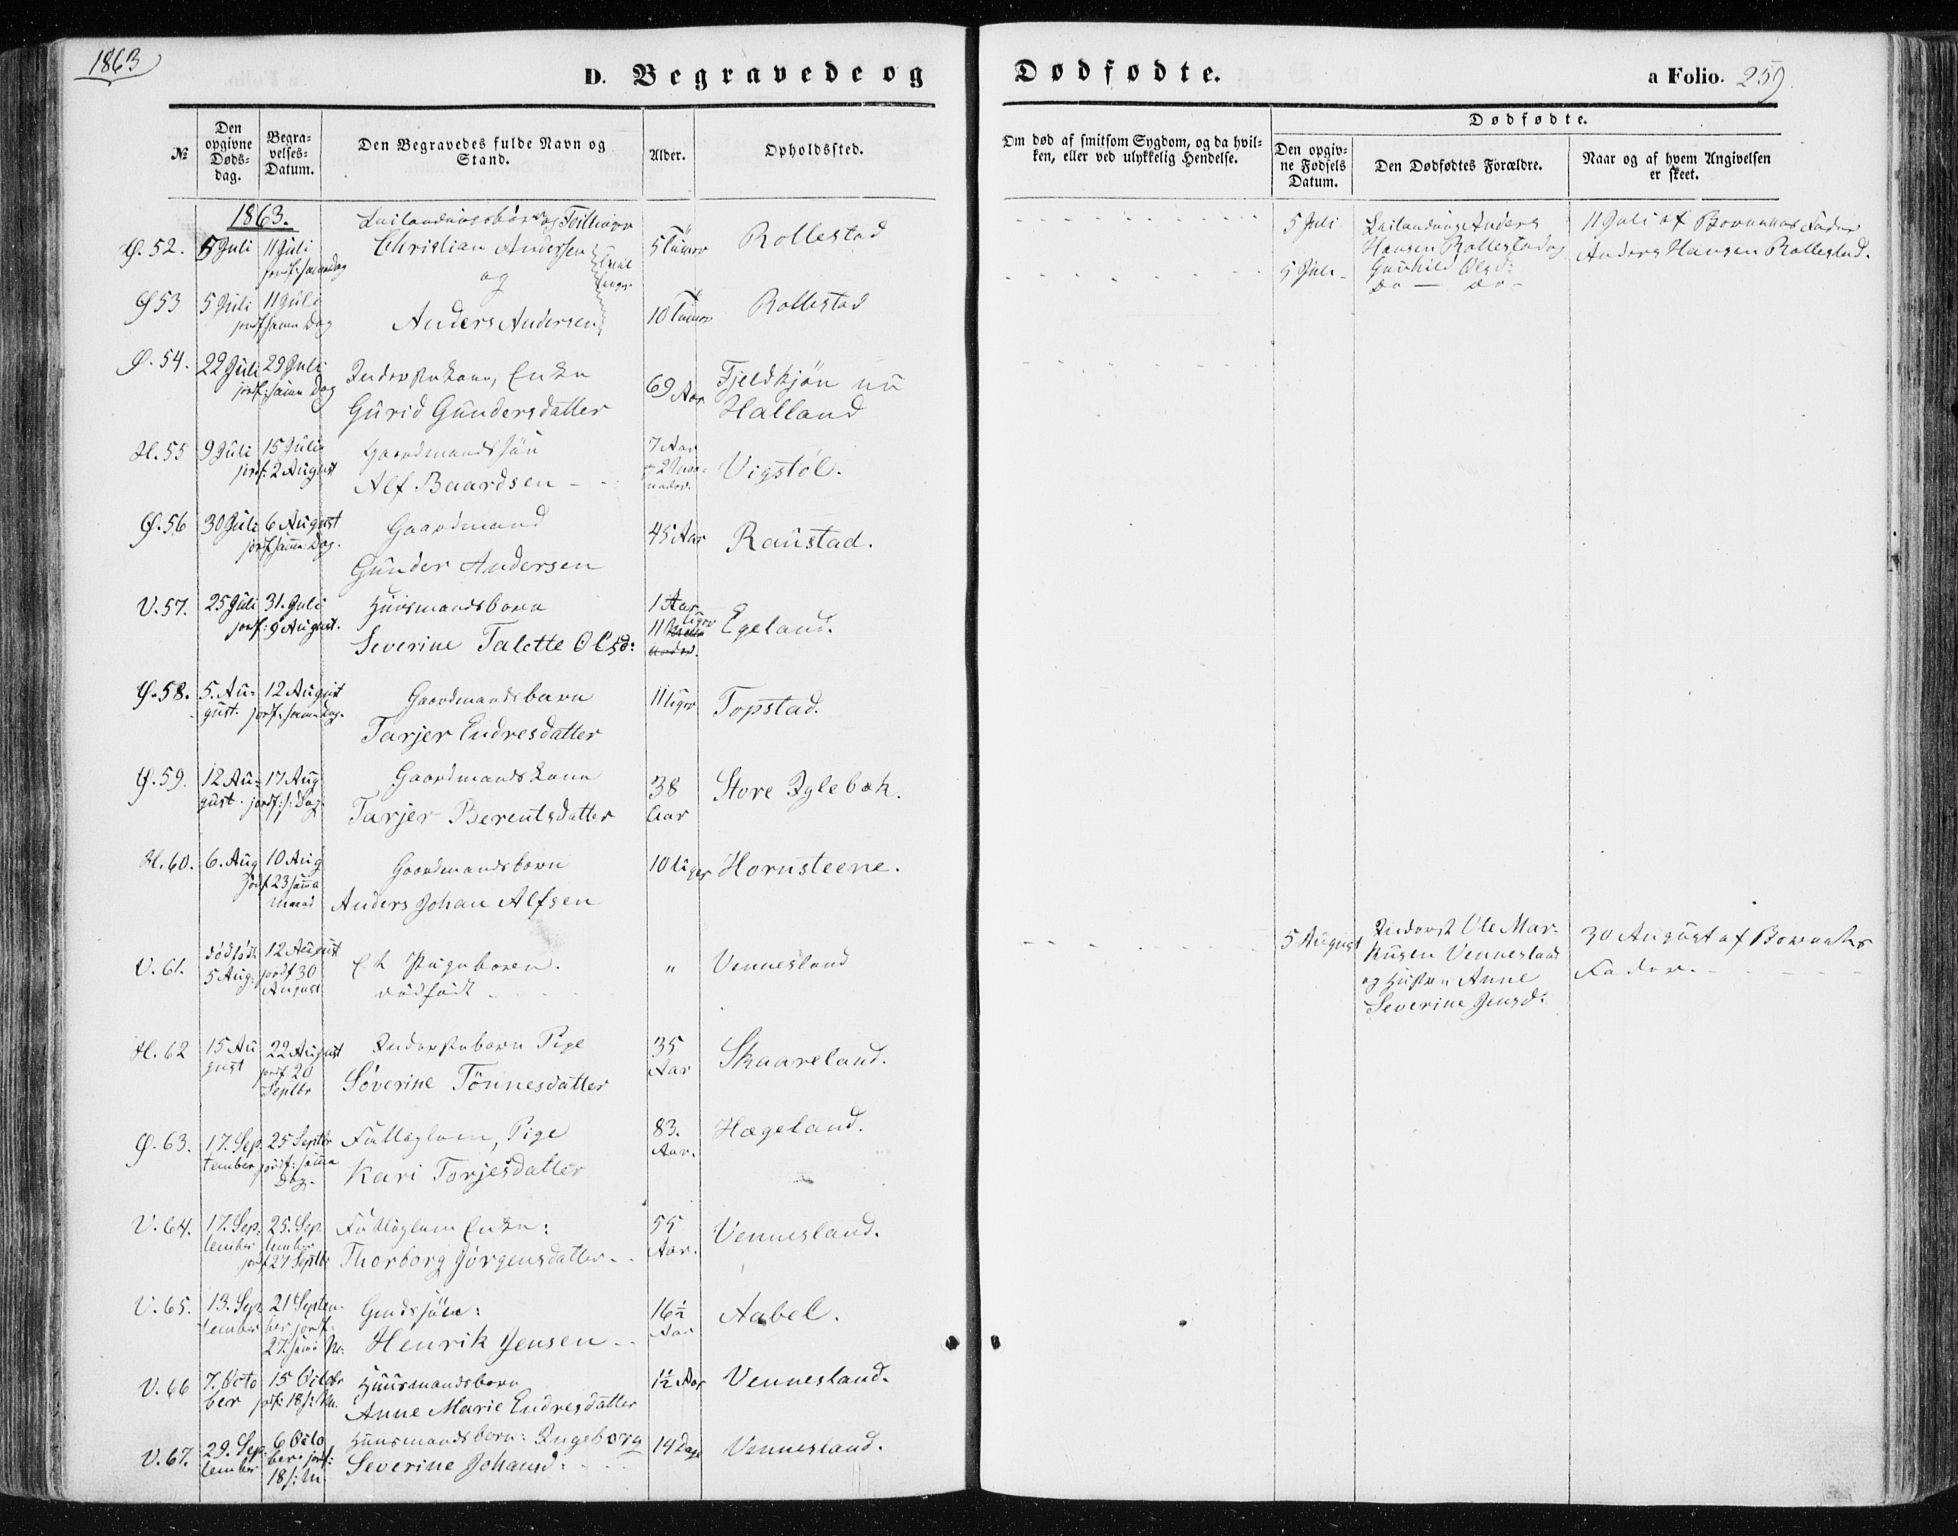 1863
D. Begravede og
Dødfødte.
a Folio. 259.
№
Den opgivne Døds-dag.
Begra-velses-Datum.
Den Begravedes fulde Navn og Stand.
Alder.
Opholdssted.
Om død af smitsom Sygdom, og da hvil-
ken, eller ved ulykkelig Hendelse.
Dødfødte.
Den opgiv-ne Fødsels Datum.
Den Dødfødtes Forældre.
Naar og af hvem Angivelsen er skeet.
1863.
Ø. 52. 5 Juli 11 Juli Christian Andersen 5 Timer Rollestad
5 Juli Anders
Hansen Rollestad og
Gunhild Olsd:
11 Juli af Barnas Fader
Anders Hansen Rollestad.
og
5 Juli - Do — Do -
Ø 53 5 Juli 11 Juli
jordf samme Dag
Anders Andersen 10 Timer Rollestad
Ø. 54. 22 Juli 29 Juli
jordf: samme Dag
Enke
Gurid Gundersdatter 69 Aar Fjeldkjøn nu
Halland
H. 55 9 Juli 15 Juli
jordf: 2 August
Gaardmandssøn
Alf Baardsen - 7 Aar Vigstøl.
Ø. 56 30 Juli 6 August
jordf samme Dag.
Gaardmand
Gunder Andersen 45 Aar Raustad.
V. 57. 25 Juli 31. Juli
jordf: 9 August.
Huusmandsbarn
Severine Talette Olsd: 1 Aar
11 Uger Egeland.
Ø. 58. 5. Au-
gust. 12 August
jordf: samme Dag.
Gaardmandsbarn
Tarjer Endresdatter 11 Uger Topstad.
Ø. 59. 12 Au-
gust. 17 Aug
jordf: s: Dag.
Gaardmandskone
Tarjer Berentsdatter 38
Aar Store Iglebæk.
H. 60. 6. Aug 10 Aug
jordf 23 samme
Maaned
Gaardmandsbarn
Anders Johan Alfsen 10 Uger Hornsteene.
V. 61. dødfødt
5 Aug: 12 August
jordf 30
August
Et Pigebarn.
dødfødt - „ Vennesland
5 August Inderst Ole Mar-
kusen Vennesland
og Hustru Anne
Severine Jensd:
30 August af Barnets
Fader.
H. 62 15 Au
gust 22 August
jordf 20
Septbr
Pige
Søverine Tønnesdatter 35
Aar Skaareland.
Ø. 63. 17. Sep-
tember 25 Septbr
jordf: samme
Dag.
Fattiglem, Pige
Kari Torjesdatter 83.
Aar. Hægeland.
V. 64. 17. Sep-
tember 25. Sep-
tember
jordf 27 Septbr
Fattiglem Enke:
Thorborg Jørgensdatter - 55
Aar. Vennesland.
V. 65. 13. Sep-
tember 21 Septem-
ber jordf:
27. samme M:
Henrik Jensen - 16½
Aar Aabel.
V. 66 7. Octo
ber 15 Octobr
jordf: 18 s: M.
Huusmandsbarn
Anne Marie Endresdatter 1½ Aar Vennesland.
V. 67. 29. Sep-
tember 6 Octo
ber jordf:
18 s: M
Huusmandsbarn: Ingeborg
Severine Johansd: 14 Dage Vennesland.